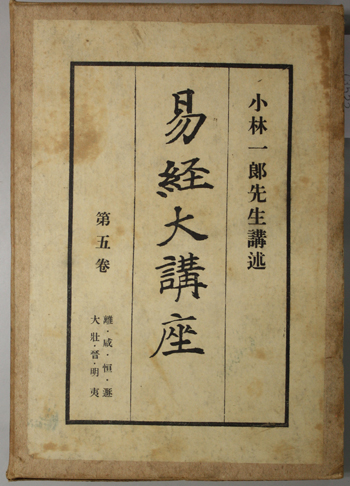 小林一郎先生講述
易経大講座
第五卷
離・咸・恒・遯
大壯・晉・明夷